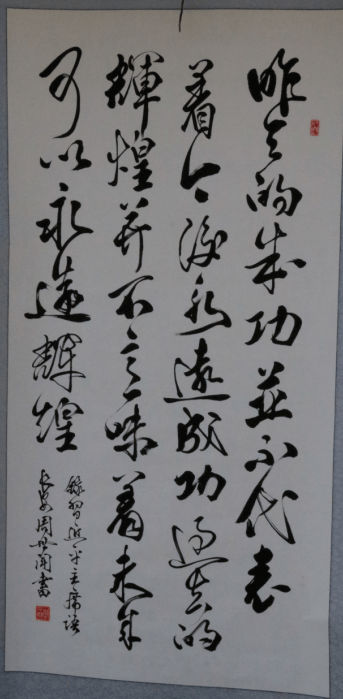 昨天的成功並不代表
着今後永遠成功過去的
輝煌并不意味着未来
可以永遠輝煌
錄習近平主席語
長安周世書